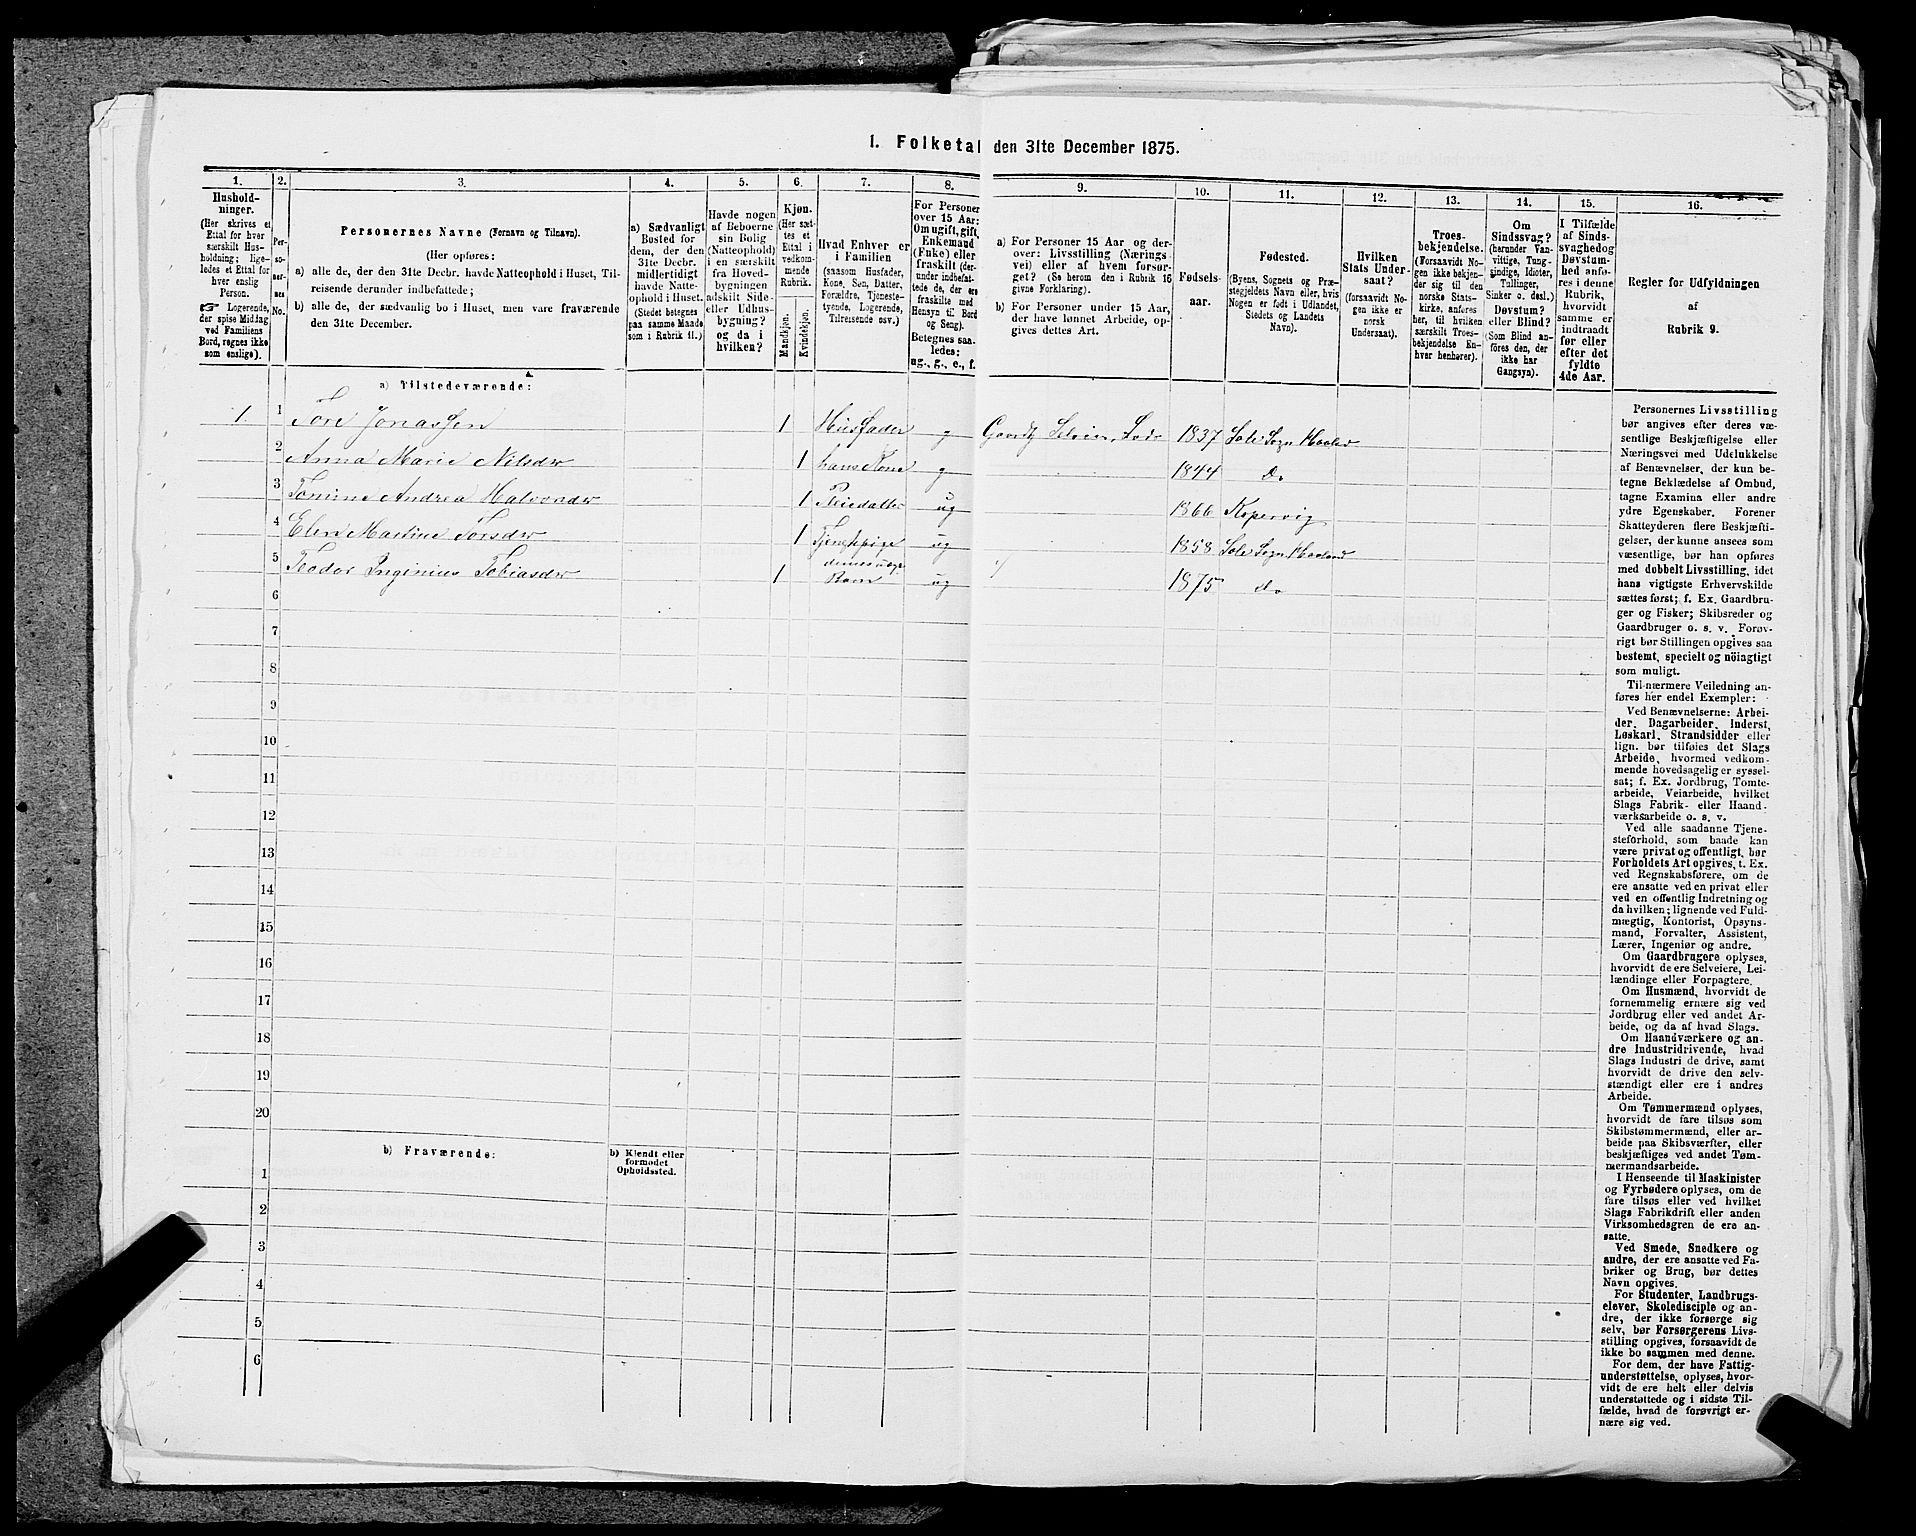 1. Folketal den 31te December 1875.
1. 2. 3. 4. 5. 6. 7. 8. 9. 10. 11. 12. 13. 14. 15. 16.
Hushold-
ninger.
(Her skrives et
Ettal for hver
særskilt Hus-
holdning; lige-
ledes et Ettal for
hver enslig
Person.
☞ Logerende,
der spise Middag
ved Familiens
Bord, regnes ikke
som enslige).
Per-
so-
ner-
nes
No.
Personernes Navne (Fornavn og Tilnavn).
(Her opføres:
a) alle de, der den 31te Decbr. havde Natteophold i Huset, Til-
reisende derunder indbefattede;
b) alle de, der sædvanlig bo i Huset, men vare fraværende
den 31te December.
a) Sædvanligt
Bosted for
dem, der den
31te Decbr.
midlertidigt
havde Natte-
ophold i Huset.
(Stedet betegnes
paa samme Maade
som i Rubrik 11.)
Havde nogen
af Beboerne
sin Bolig
(Natteophold)
i en særskilt
fra Hoved-
bygningen
adskilt Side-
eller Udhus-
bygning?
og da i
hvilken?
Kjøn.
(Her sæt-
tes et
Ettal i
vedkom-
mende
Rubrik.
Mandkjøn.
Kvindekjøn.
Hvad Enhver er
i Familien
(saasom Husfader,
Kone, Søn, Datter,
Forældre, Tjeneste-
tyende, Logerende,
Tilreisende osv.)
For Personer
over 15 Aar:
Om ugift, gift,
Enkemand
(Enke) eller
fraskilt (der-
under indbefat-
tede de, der ere
fraskilte med
Hensyn til Bord
og Seng).
Betegnes saa-
ledes:
ug., g., e., f.
a) For Personer 15 Aar og der-
over: Livsstilling (Nærings-
vei) eller af hvem forsør-
get? (Se herom den i Rubrik 16
givne Forklaring).
b) For Personer under 15 Aar,
der have lønnet Arbeide, op-
gives dettes Art.
Fødsels-
aar.
Fødested.
(Byens, Sognets og Præ-
stegjeldets Navn eller, hvis
Nogen er født i Udlandet,
Stedets og Landets
Navn).
Hvilken
Stats Under-
saat?
(forsaavidt No-
gen ikke er
norsk
Undersaat).
Troes-
bekjendelse.
(Forsaavidt No-
gen ikke bekjen-
der sig til den
norske Stats-
kirke, anføres
her, til hvilken
særskilt Troes-
bekjendelse En-
hver henhører).
Om
Sindssvag?
(herunder Van-
vittige, Tung-
sindige, Idioter,
Tullinger,
Sinker o. desl.)
Døvstum?
eller Blind?
(Som Blind an-
føres den, der
ikke har
Gangsyn).
I Tilfælde
af Sinds-
svaghedog
Døvstum-
hed anfø-
res i denne
Rubrik,
hvorvidt
samme er
indtraadt
før eller
efter det
fyldte
4de Aar.
Regler for Udfyldningen
af
Rubrik 9.
a) Tilstedeværende:
1. 1 Tore Jonassen 1 Husfader g Gaardbr Selveier 1837 Sole Sogn
2 Anna Marie Nilsdtr 1 hans Kone g 1844 do
3 Tomine Andrea Halvorsdtr 1 Pleiedatter ug 1866 Kopervig
4 Elen Martine Torsdtr 1 Tjenestepige ug 1858 Sole Sogn Haaland
5 Teodor Inginius Tobiasdtr 1 ug 1875 do
6
7
8
9
10
11
12
13
14
15
16
17
18
19
20
b) Fraværende:
b) Kjendt eller
formodet
Opholdssted.
1
2
3
4
5
6
Personernes Livsstilling
bør angives efter deres væ-
sentlige Beskjæftigelse eller
Næringsvei med Udelukkelse
af Benævnelser, der kun be-
tegne Beklædelse af Ombud,
tagne Examina eller andre
ydre Egenskaber. Forener
Skatteyderen flere Beskjæfti-
gelser, der kunne ansees som
væsentlige, bør han opføres
med dobbelt Livsstilling, idet
hans vigtigste Erhvervskilde
sættes først; f. Ex. Gaardbru-
ger og Fisker; Skibsreder og
Gaardbruger o. s. v. Forøv-
rigt bør Stillingen opgives saa
bestemt, specielt og nöiagtigt
som muligt.
Til nærmere Veiledning an-
føres her endel Exempler:
Ved Benævnelserne: Arbei-
der, Dagarbeider, Inderst,
Løskarl, Strandsidder eller
lign. bør tilføies det Slags
Arbeide, hvormed vedkom-
mende hovedsagelig er syssel-
sat; f. Ex. Jordbrug, Tomte-
arbeide, Veiarbeide, hvilket
Slags Fabrik- eller Haand-
værksarbeide o. s. v.
Ved alle saadanne Tjene-
steforhold, som baade kan
være privat og offentligt, bør
Forholdets Art opgives, t. Ex.
ved Regnskabsførere, om de
ere ansatte ved en privat eller
ved en offentlig Indretning og
da hvilken; lignende ved Fuld-
mægtig, Kontorist, Opsyns-
mand, Forvalter, Assistent,
Lærer, Ingeniør og andre.
Om Gaardbrugere oplyses,
hvorvidt de ere Selveiere, Lei-
lændinge eller Forpagtere.
Om Husmænd, hvorvidt de
fornemmelig ernære sig ved
Jordbrug eller ved andet Ar-
beide, og da af hvad Slags.
Om Haandværkere og an-
dre Industridrivende, hvad
Slags Industri de drive, samt
hvorvidt de drive den selv-
stændigt eller ere i andres
Arbeide.
Om Tømmermænd oplyses,
hvorvidt de fare tilsøs som
Skibstømmermænd, eller ar-
beide paa Skibsværfter, eller
beskjæftiges ved andet Tøm-
mermandsarbeide.
I Henseende til Maskinister
og Fyrbødere oplyses, om de
fare tilsøs eller ved hvilket
Slags Fabrikdrift eller anden
Virksomhedsgren de ere an-
satte.
Ved Smede, Snedkere og
andre, der ere ansatte ved Fa-
briker og Brug, bør dettes
Navn opgives.
For Studenter, Landbrugs-
elever, Skoledisciple og an-
dre, der ikke forsørge sig
selv, bør Forsørgerens Livs-
stilling opgives, forsaavidt de
ikke bo sammen med denne.
For dem, der have Fattig-
understøttelse, oplyses, hvor-
vidt de ere helt eller delvis
understøttede og i sidste Til-
fælde, hvad de forøvrigt er-
nære sig ved.